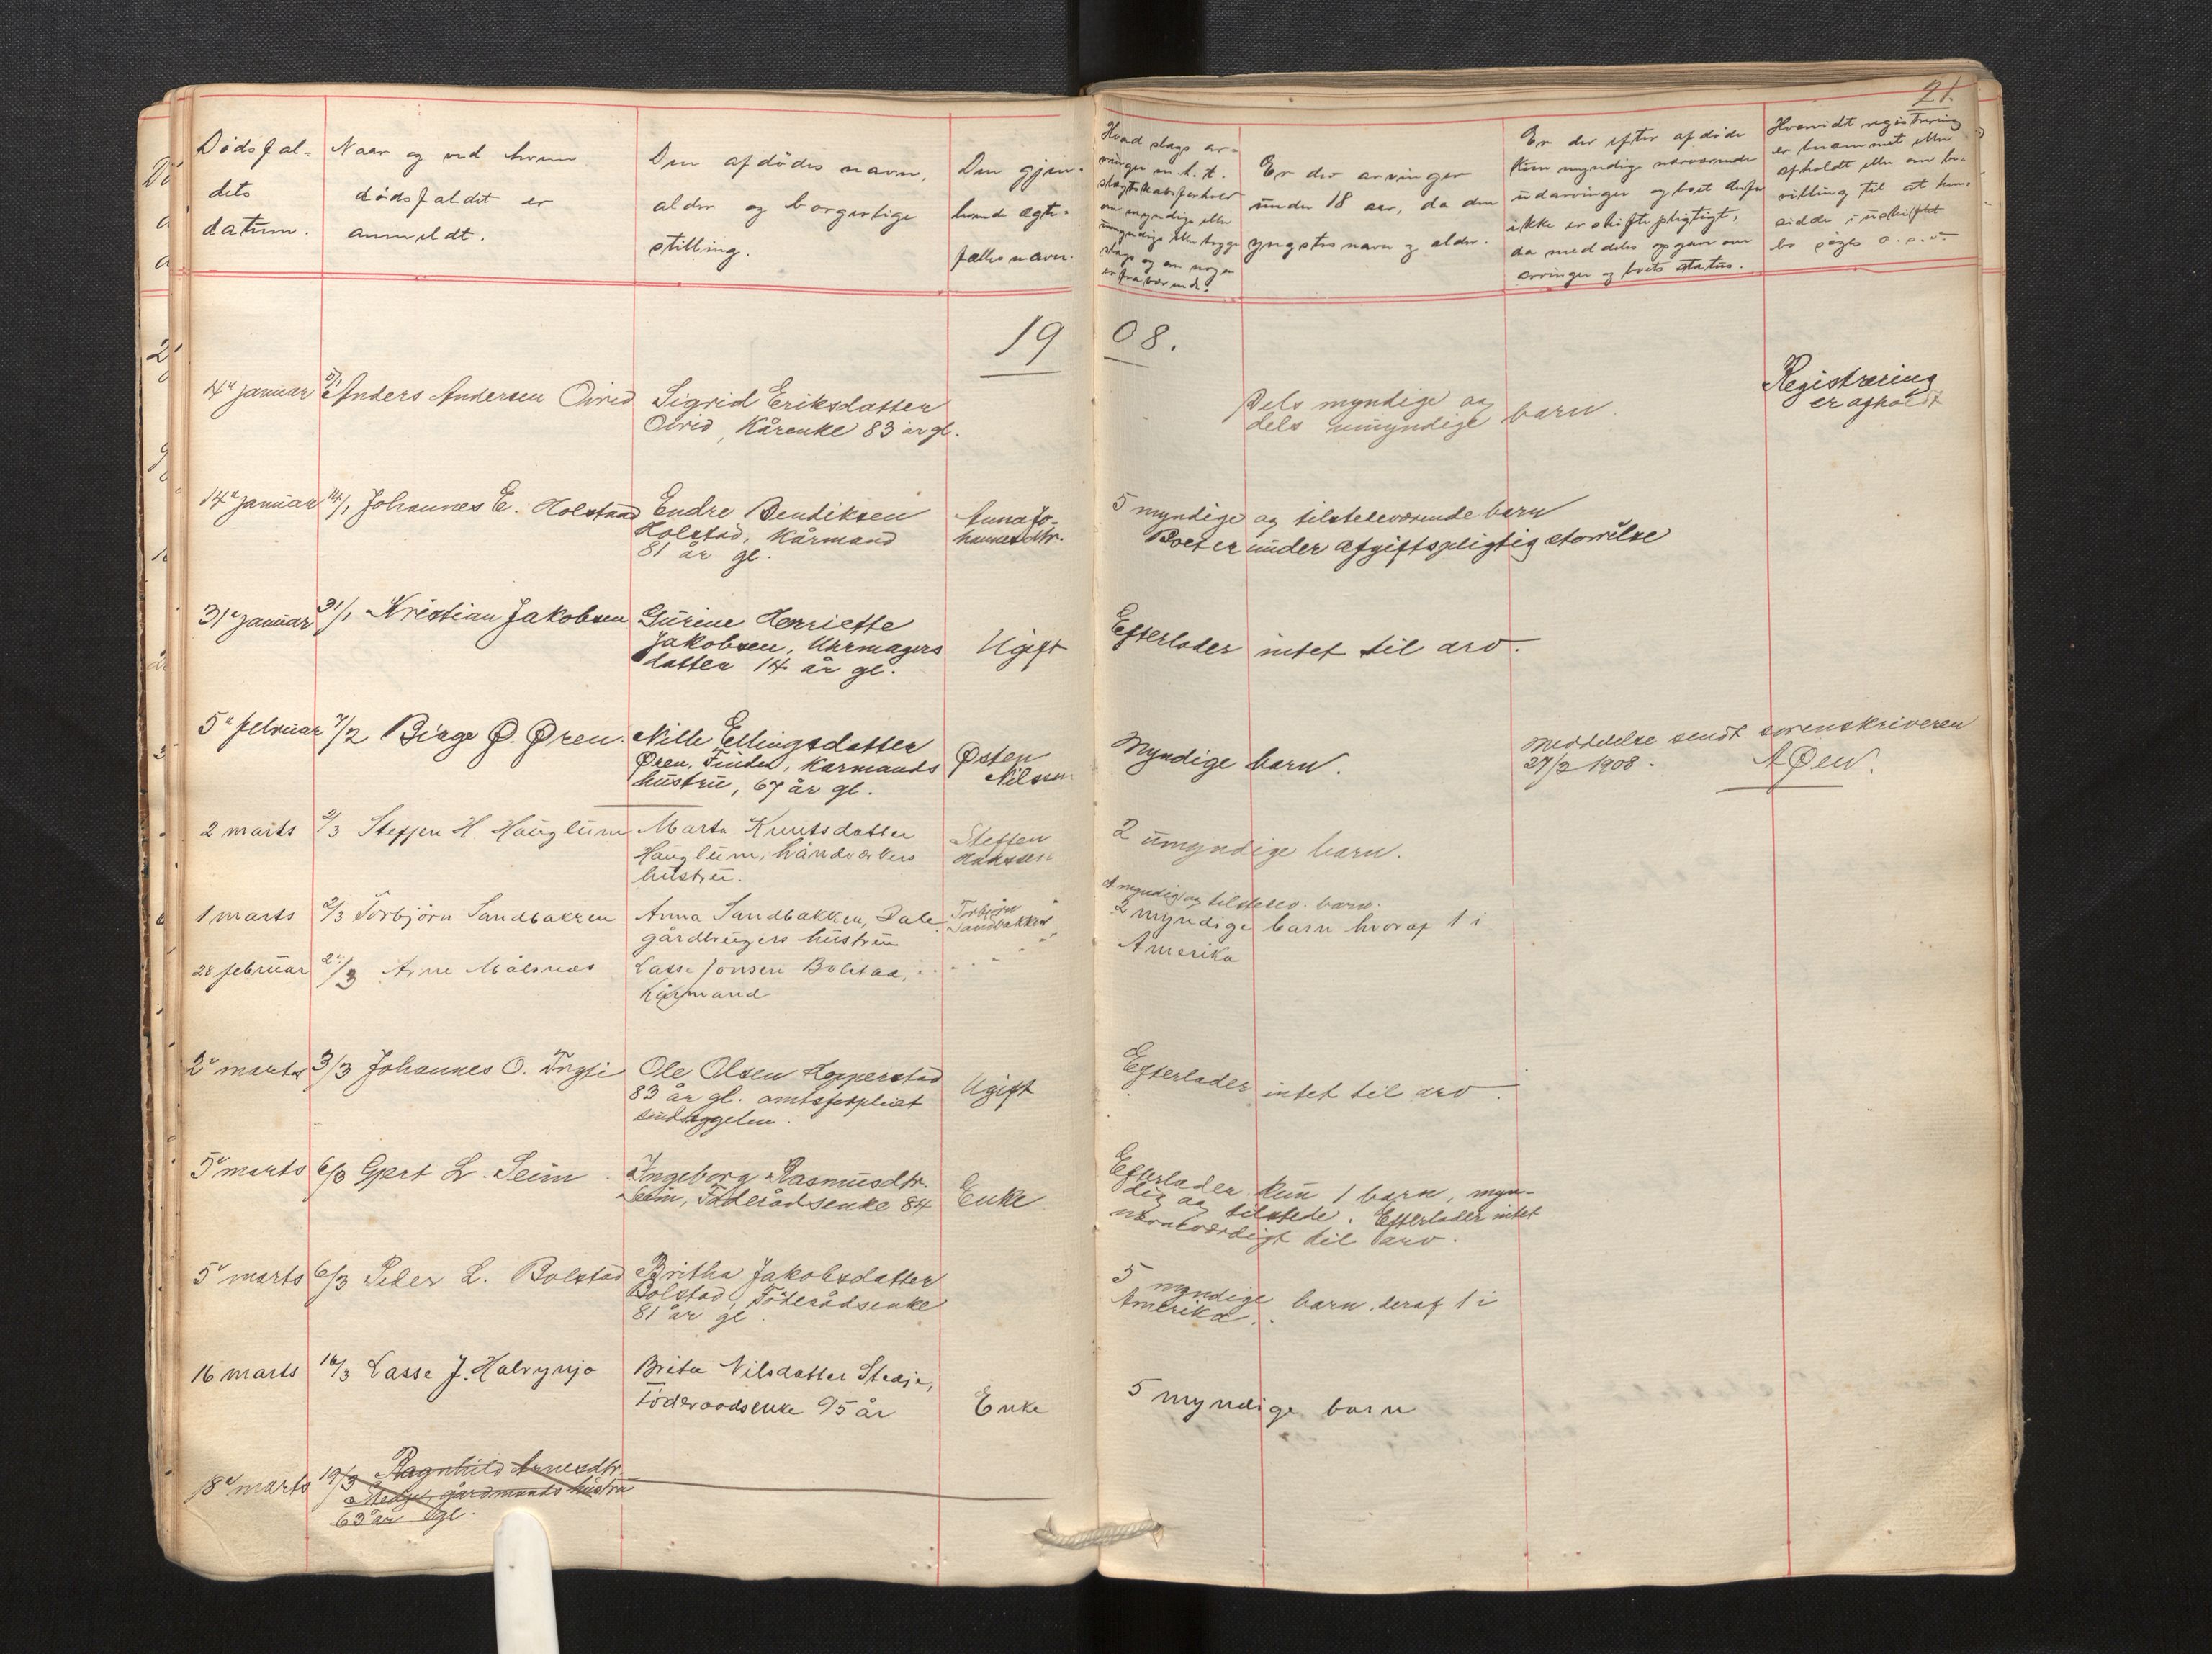 21.
Dödsfal=
dets
datum.
Naar og ved hvem
dödsfaldet er
anmeldt.
Den afdödes navn,
alder og borgerlige
stilling.
Den gjen=
levende ægte=
fælles navn.
Hvad slags ar=
vinger m. h. t.
slægtskabsforhold
om myndige eller
umyndige eller begge
slags og om nogen
er fraværende.
Er der arvinger
under 18 aar, da den
yngstes navn og alder.
Er der efter afdöde
kun myndige nærværende
udarvinger og boet derfor
ikke er skiftepligtigt,
da meddeles opgave om
arvinger og boets status.
Hvorvidt registrering
er berammet eller
afholdt eller om be=
villing til at hen=
sidde i uskiftet
bo söges o. s. v.
19 08.
4de januar 5/1 Anders Andersen Qvied
Sigrid Eriksdatter
Qvied, Kårenke 83 år gl.
Dels myndige og
dels umyndige barn.
Registrering
er afholdt
14de januar 14/1 Johannes E. Holstad
Endre Bendiksen
Holstad, Kårmand
81 år gl.
Anna Jo-
hannesdtr.
5 myndige og tilstedeværende barn
Boet er under afgiftspligtig størrelse
31te januar 31/1 Kristian Jakobsen
Gurine Henriette
Jakobsen, Uhrmagers
datter 14 år gl.
Ugift
Efterlader intet til arv.
5te februar 7/2 Birge Ø. Øren.
Nille Ellingsdatter
Øren, Finden, Kårmands
hustru, 67 år gl.
Østen
Nilssen
Myndige barn.
Meddelelse sendt sorenskriveren
27/2 1908. AØew.
2 marts 2/3 Steffen H. Hauglum
Marta Knutsdatter
Hauglum, håndverkers
hustru.
Steffen
Hanssen
2 umyndige barn.
1 marts 2/3 Torbjörn Sandbakken
Anna Sandbakken, Dale
gårdbrugers hustru
Torbjörn
Sandbakken
myndig og tilstedev. barn.
28 februar 2/3 Arne Målsnes
Lasse Jonsen Bolstad,
Kårmand
2 myndige barn hvoraf 1 i
Amerika
2de marts 3/3 Johannes O. Tryti
Ole Olsen Hopperstad
83 år gl. amtsforpleiet
sindssygelem.
Ugift
Efterlader intet til arv.
5te marts 6/3 Gjert L. Seim.
Ingeborg Rasmusdtr.
Seim, Föderådsenke 84
Enke
Efterlader kun 1 barn, myn-
dig og tilstede. Efterlader intet
nævneværdigt til arv.
5te marts 6/3 Peder L. Bolstad
Britha Jakobsdatter
Bolstad, Föderådsenke
81 år gl.
5 myndige barn, deraf 1 i
Amerika.
16 marts 16/3 Lasse J. Halvynjo
Brita Nilsdatter Stedje,
Föderoadsenke 95 år
Enke
5 myndige barn
18de marts 19/3 Ragnhild Arnesdtr.
Stedje, gårdmands hustru
63 år gl.